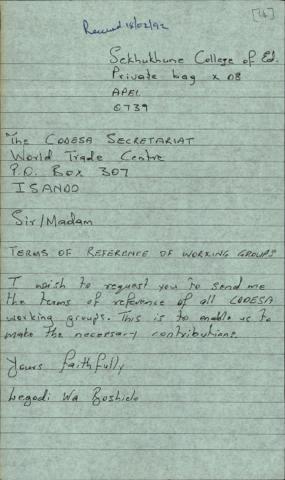 [16]
Received 18/02/92
Sekhukhune College of Ed.
Private bag x 08
APEL
0739
The CODESA SECRETARIAT
World Trade Centre
P.O. Box 307
ISANDO
Sir/Madam
TERMS OF REFERENCE OF WORKING GROUPS
I wish to request you to send me
the terms of reference of all CODESA
working groups. This is to enable us to
make the necessary contributions.
Yours faithfully
Legodi Wa Boshielo